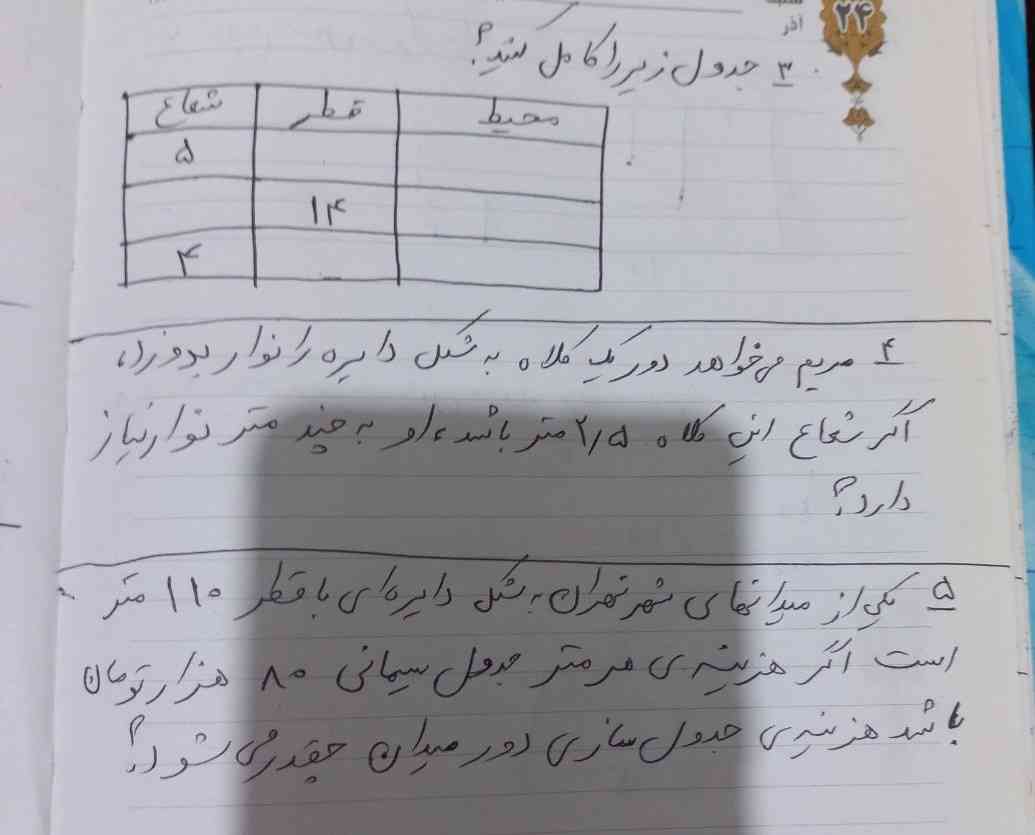 ۲۴
آذر
۳ جدول زیر را کامل کنید؟
محیط قطر شعاع
۵
۱۴
۴
۴ مریم می‌خواهد دور یک کلاه به شکل دایره را نوار بدوزد،
اگر شعاع این کلاه ۲/۵ متر باشد، او به چند متر نوار نیاز
دارد؟
۵ یکی از میدانهای شهر تهران به شکل دایره‌ای با قطر ۱۱۰ متر
است اگر هزینه‌ی هر متر جدول سیمانی ۸۰ هزار تومان
باشد هزینه‌ی جدول سازی دور میدان چقدر می‌شود؟